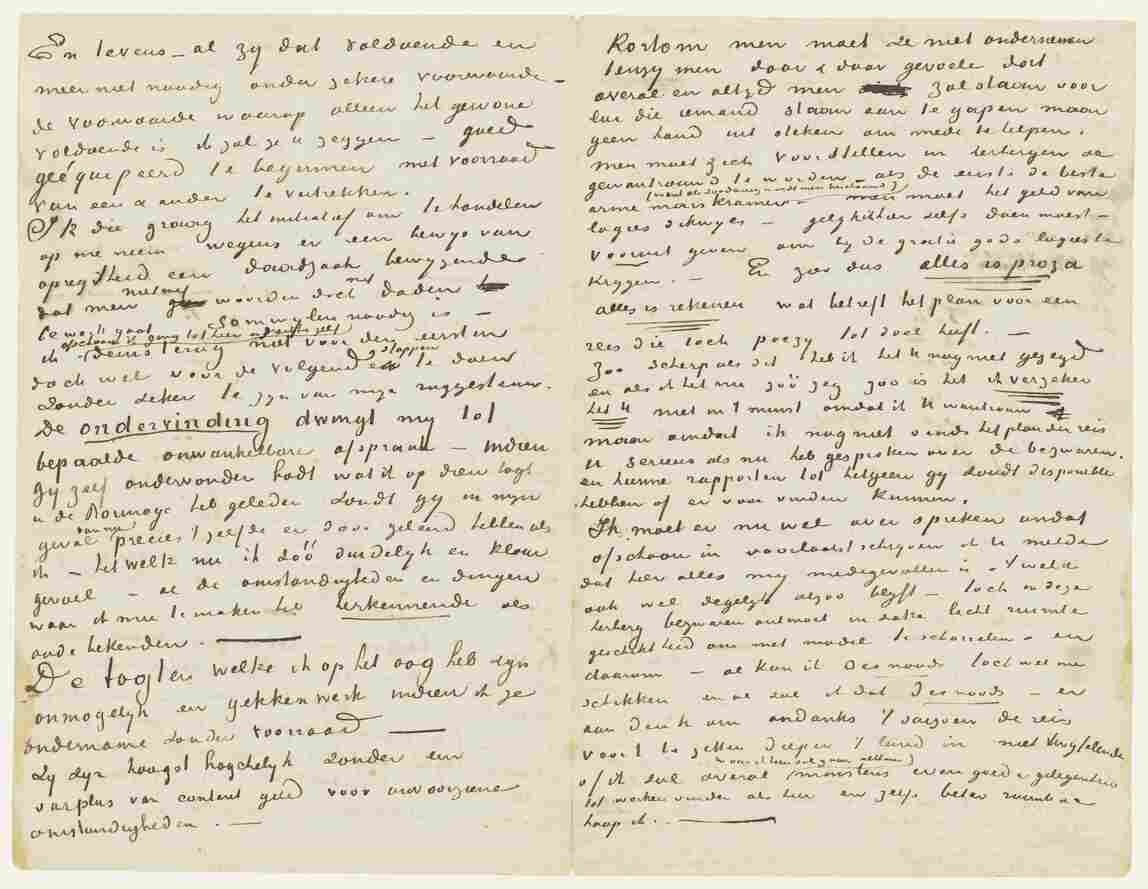 En tevens – al zij dat voldoende en
meer niet noodig onder zekere voorwaarde –
de voorwaarde waarop alleen het gewone
voldoende is ik zal ze u zeggen – goed
geéquipeerd te beginnen met voorraad
van een & ander te vertrekken.
Ik die graag het initiatief om te handelen
op me neem wegens er een bewijs van
opregtheid een daadzaak bewijzende
dat men niet met woorden doch met daden
te werk gaat somwylen noodig is –
ik ofschoon ik gang tot hier ondernam zelf
deins terug niet voor den eersten
doch wel voor de volgende stappen te doen
zonder zeker te zyn van myn ruggesteun.
De ondervinding dwingt my tot
bepaalde onwankelbare afspraak – indien
Gy zelf ondervonden hadt wat ik op dien togt
in de Borinage heb geleden zoudt gy in myn
geval van nu precies 't zelfde er door geleerd hebben als
ik – hetwelk nu ik zóó duidelyk en klaar
gevoel – al de omstandigheden en dingen
waar ik mee te maken heb herkennende als
oude bekenden. —
De togten welke ik op het oog heb zyn
onmogelyk en gekkenwerk indien ik ze
ondername zonder voorraad —
Zy zyn hoogst hagchelyk zonder een
surplus van contant geld voor onvoorziene
omstandigheden. —
Kortom men moet ze niet ondernemen
tenzy men door & door gevoele dat
overal en altyd men zal staan voor
lui die iemand staan aan te gapen maar
geen hand uitsteken om mede te helpen.
Men moet zich voorstellen in herbergen ea
gewantrouwd te worden – als de eerste de beste
(want als zoodanig wordt men beschouwd)
arme marskramer – men moet het geld van
logies dikwyls – gelyk hier zelfs doen moest –
vooruit geven om by de gratie gods logies te
krygen. – En zoo dus alles is proza
alles is rekenen wat betreft het plan voor een
reis die toch poezy tot doel heeft. –
Zoo scherp als dit heb ik het U nog niet gezegd
en als ik het nu zóó zeg zoo is het ik verzeker
het U niet in 't minst omdat ik U wantrouw
maar omdat ik nog niet sinds het plan der reis
U serieus als nu heb gesproken over de bezwaren.
en hunne rapporten tot hetgeen gy zoudt disponible
hebben of er voor vinden kunnen.
Ik moet er nu wel over spreken omdat
ofschoon in voorlaatst schryven ik U meldde
dat hier alles my medegevallen is – 't welk
ook wel degelyk alzoo blyft – toch in deze
herberg bezwaren ontmoet in zake licht ruimte
geschiktheid om met model te scharrelen – en
daarom – al kan ik desnoods toch wel me
schikken en al zal ik dat desnoods – er
aan denk om ondanks 't saizoen de reis
voort te zetten dieper 't land in niet twyfelende
of ik zal overal minstens even goede gelegenheid
tot werken vinden als hier en zelfs beter ruimte
hoop ik. —